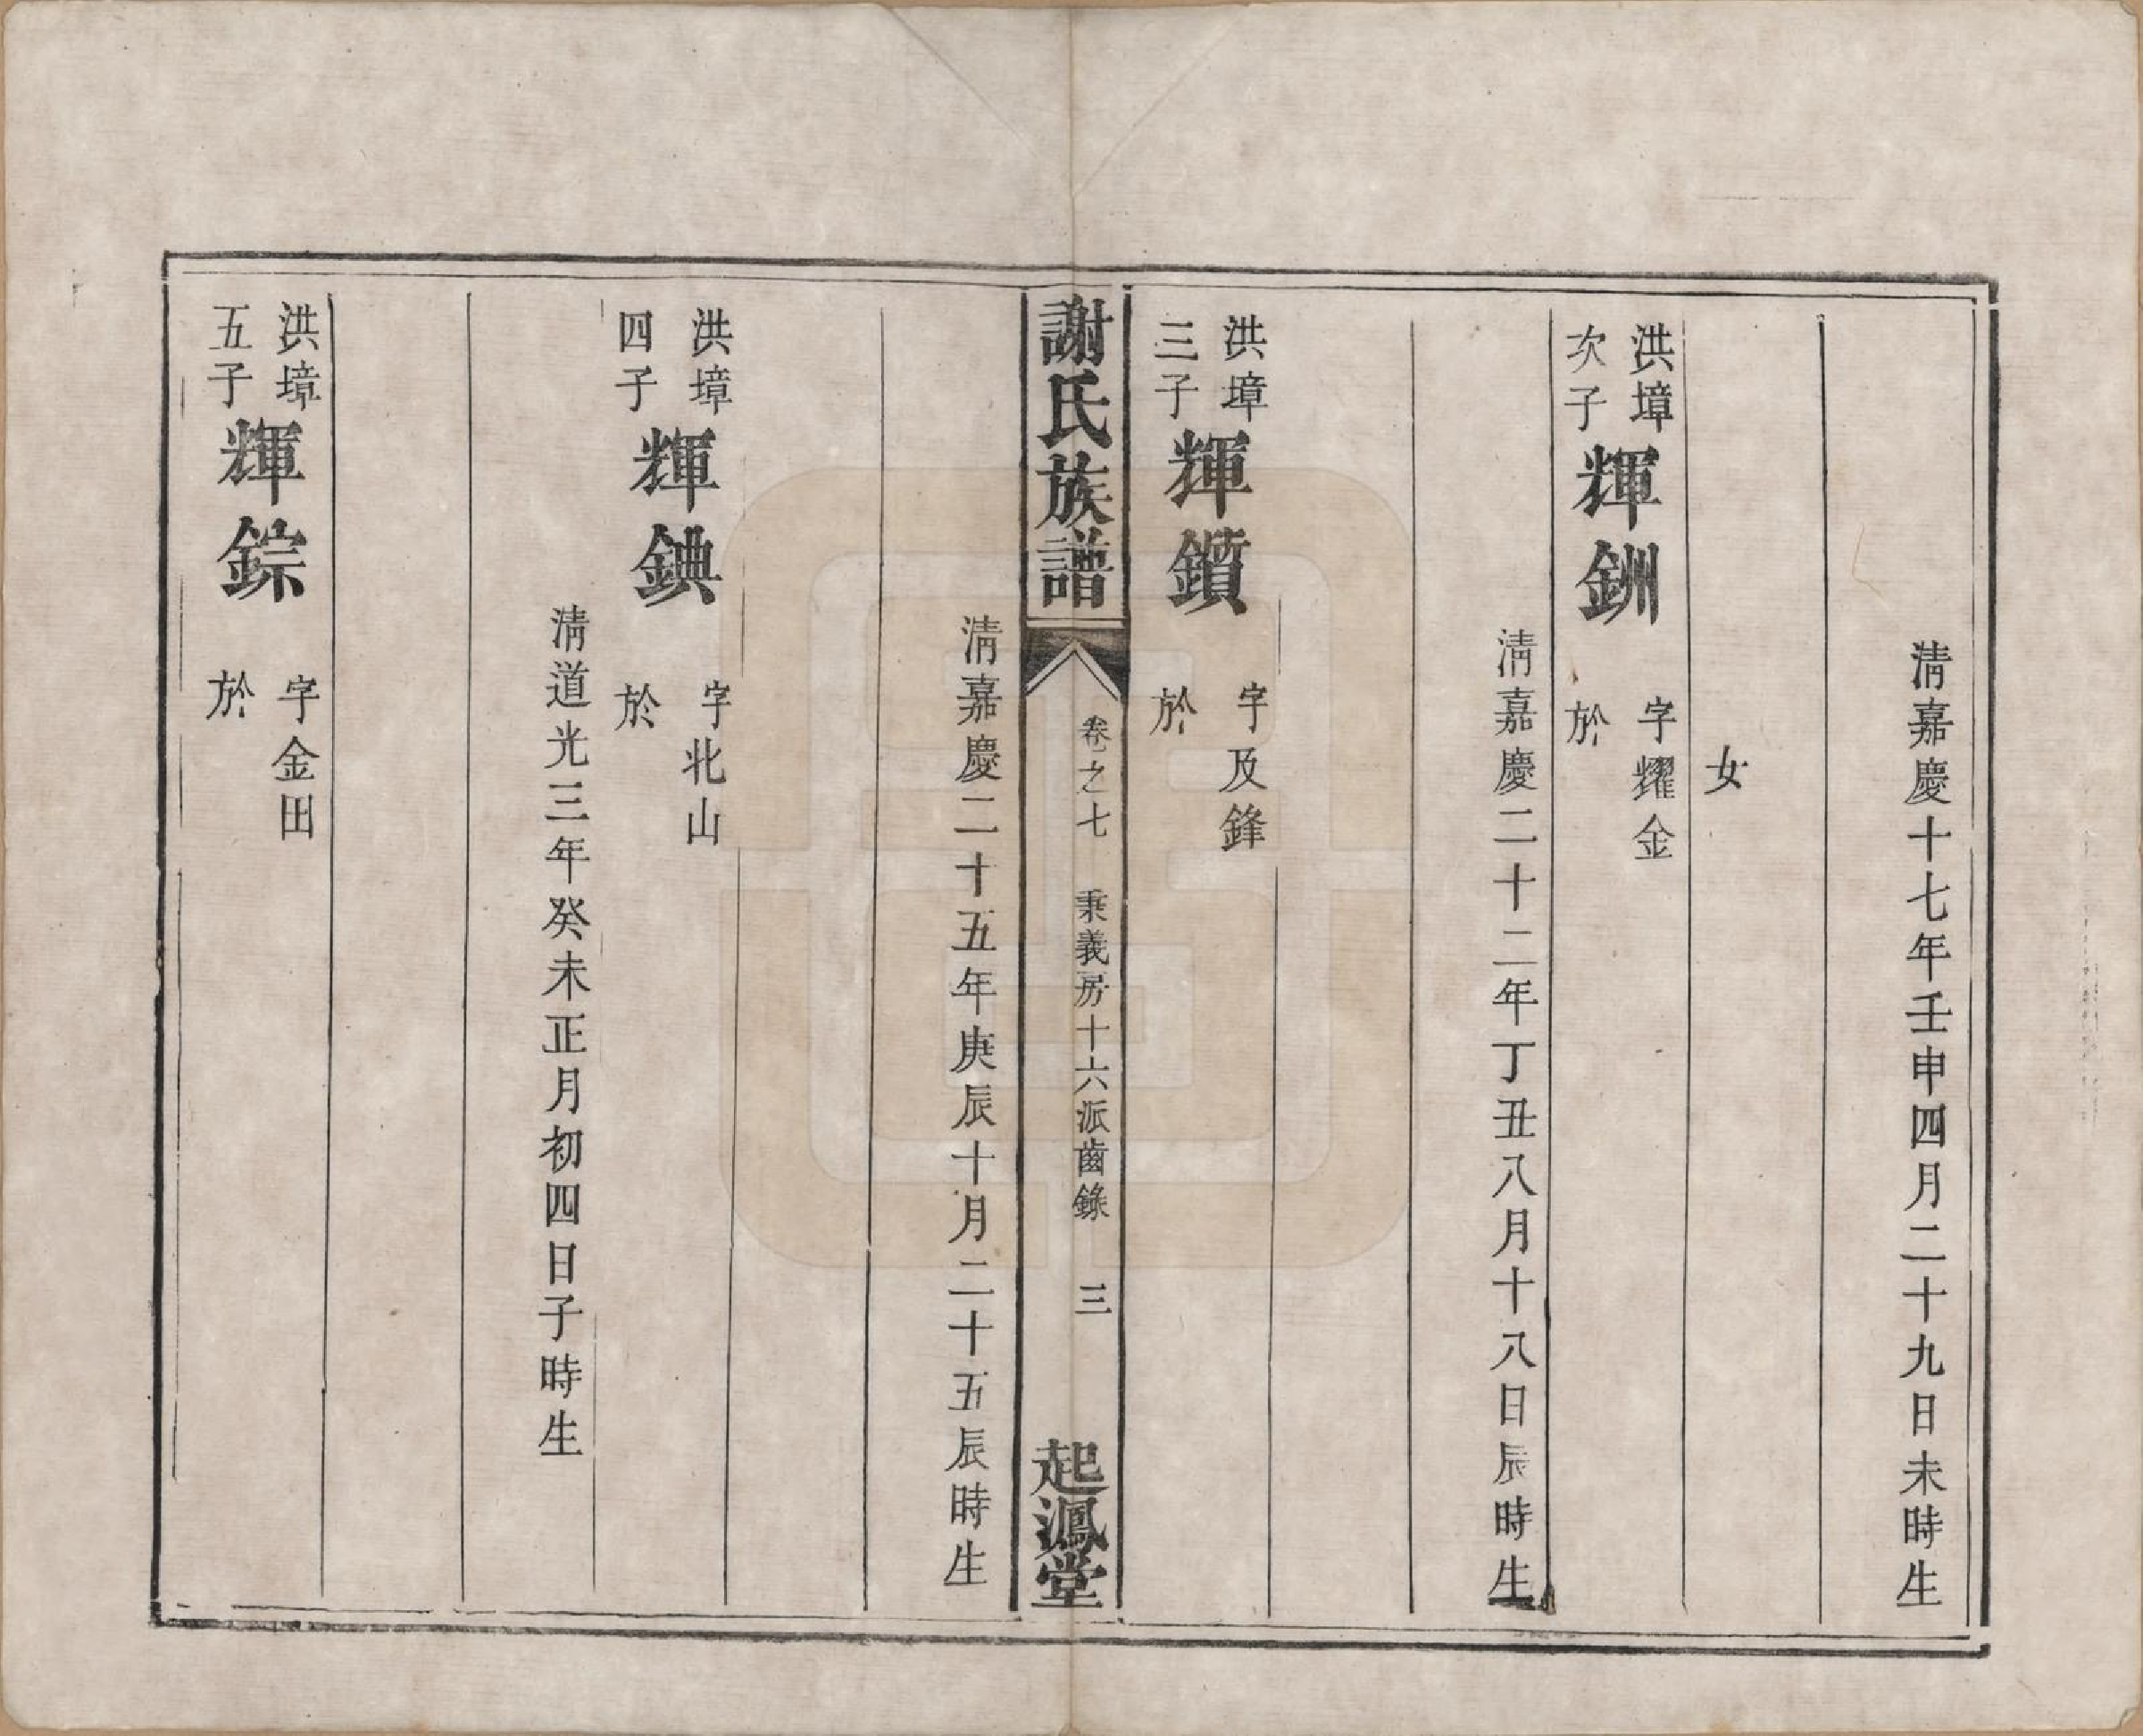 清嘉慶十七年壬申四月二十九日未時生
女
洪墇次子輝銂 字耀金
於
清嘉慶二十二年丁丑八月十八日辰時生
洪墇三子輝鐼 字及鋒
於
謝氏族譜 卷之七 秉義房十六派齒錄 三 起鳳堂
清嘉慶二十五年庚辰十月二十五辰時生
洪墇四子輝錪 字北山
於
清道光三年癸未正月初四日子時生
洪墇五子輝錝 字金田
於